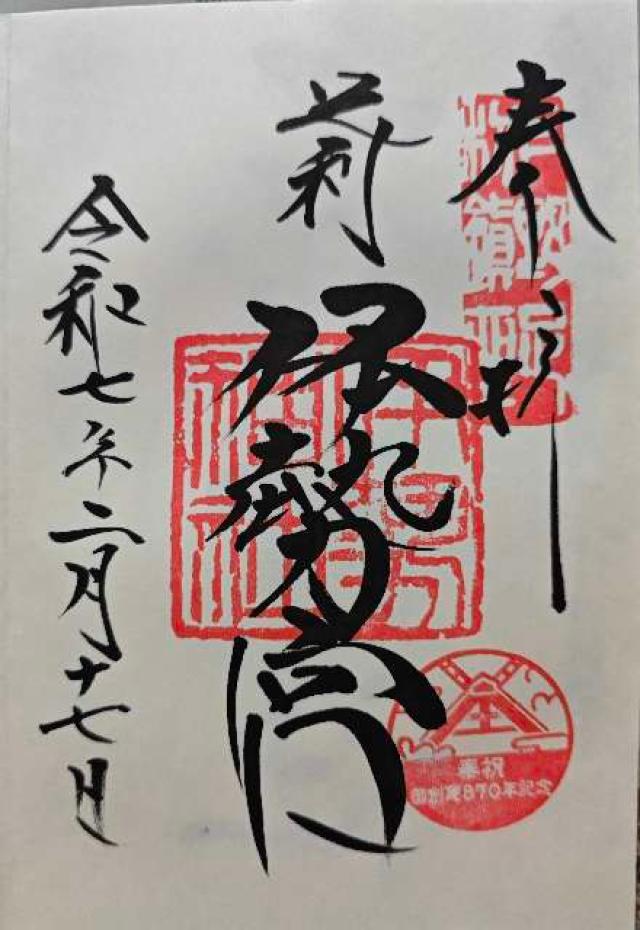 奉拝
足利
伊勢宮
伊勢神社
令和七年二月十七日
奉祝
御創建870年記念